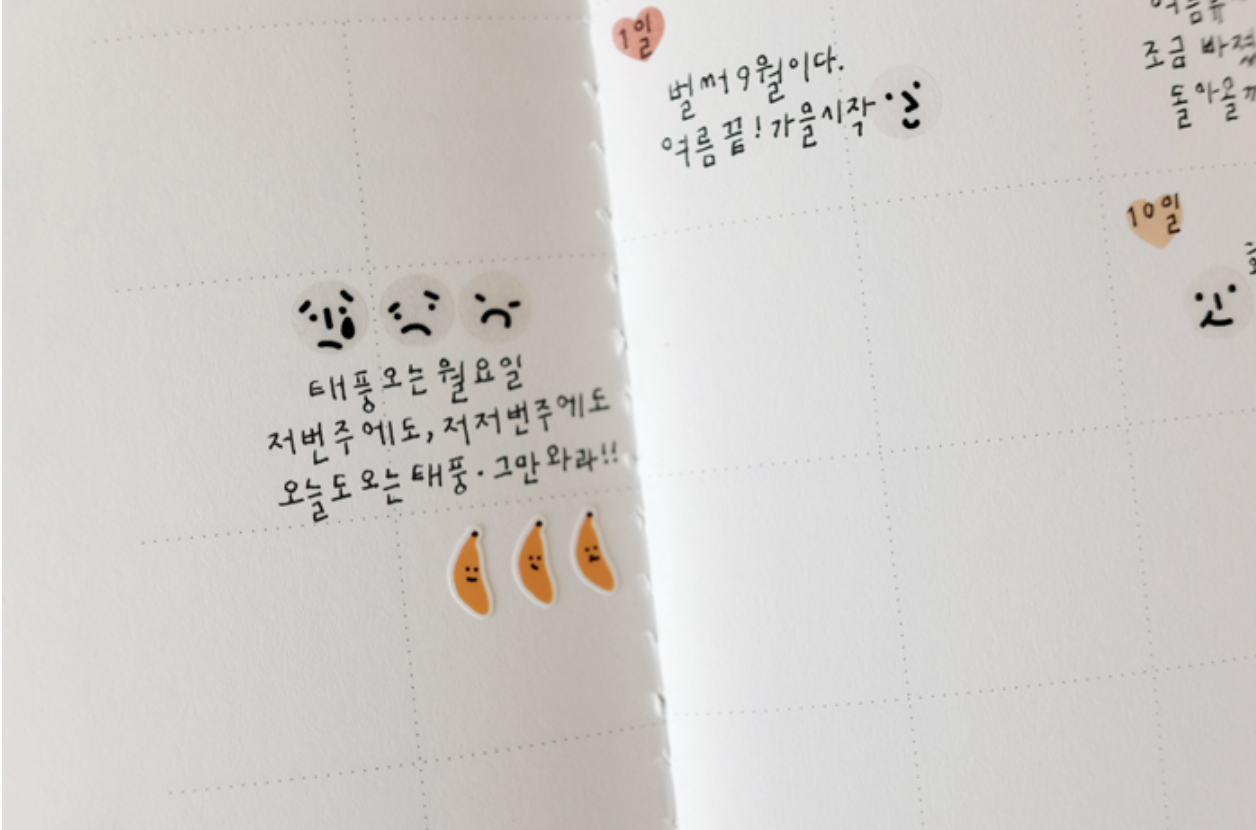 태풍오는 월요일
저번주에도, 저저번주에도
오늘도 오는 태풍. 그만와라!!
1일
벌써 9월이다.
여름 끝! 가을시작
조금
돌아올
10일